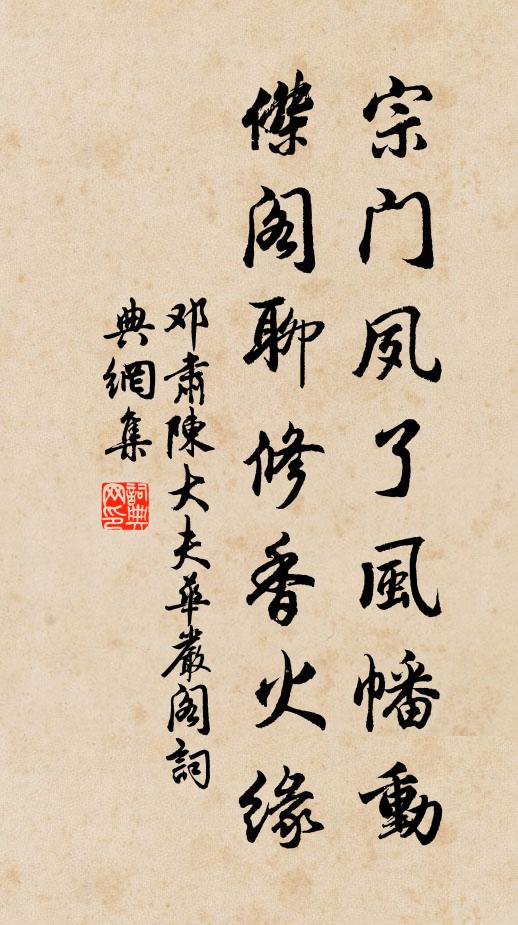 宗门夙了風幡動
傑阁聊修香火緣
邓肅陳大夫華嚴阁詞
典網集
詞典网印